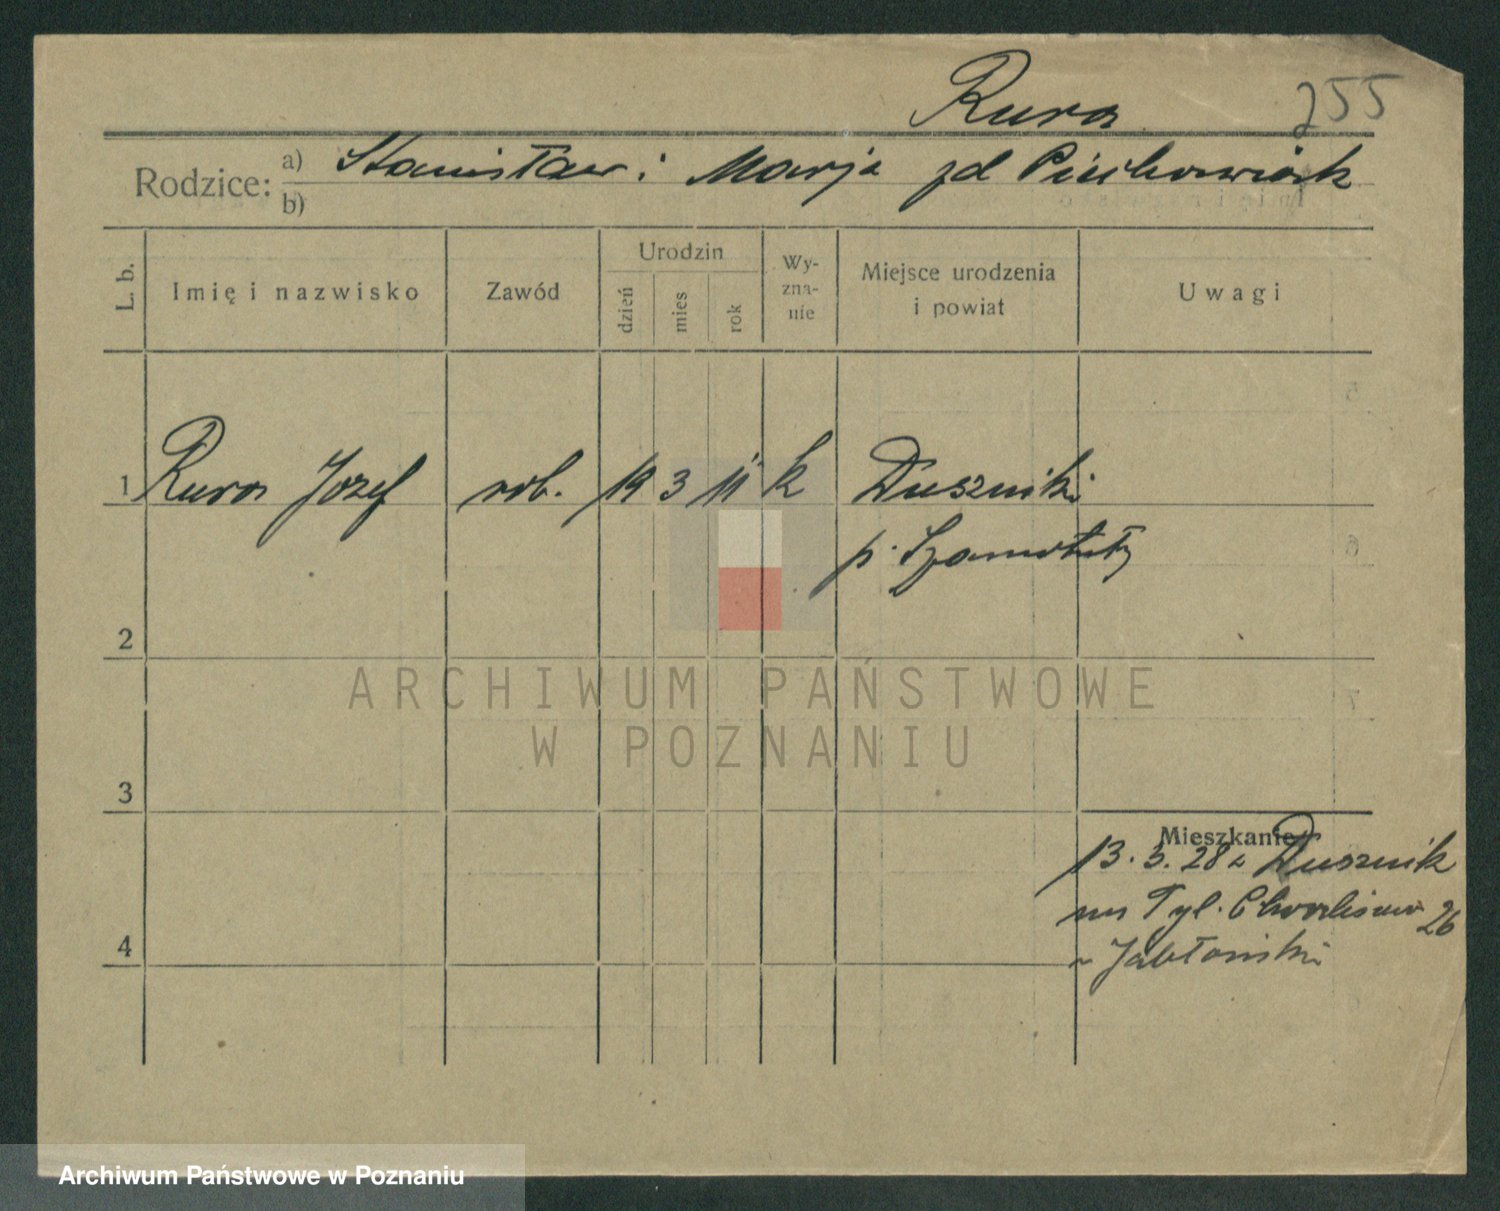 Rura 255
Rodzice: a) Stanisław i Marja zd Piechowiak
b)
L. b. Imię i nazwisko Zawód Urodzin dzień mies rok Wy-zna-nie Miejsce urodzenia i powiat Uwagi
1 Rura Jozef rob. 19 3 11 k Duszniki
p. Szamotuły
2
ARCHIWUM PAŃSTWOWE
W POZNANIU
3
Mieszkanie
13.3.28 z Dusznik
na Tyl. Chwaliszewo 26
4
Jabłoński
Archiwum Państwowe w Poznaniu